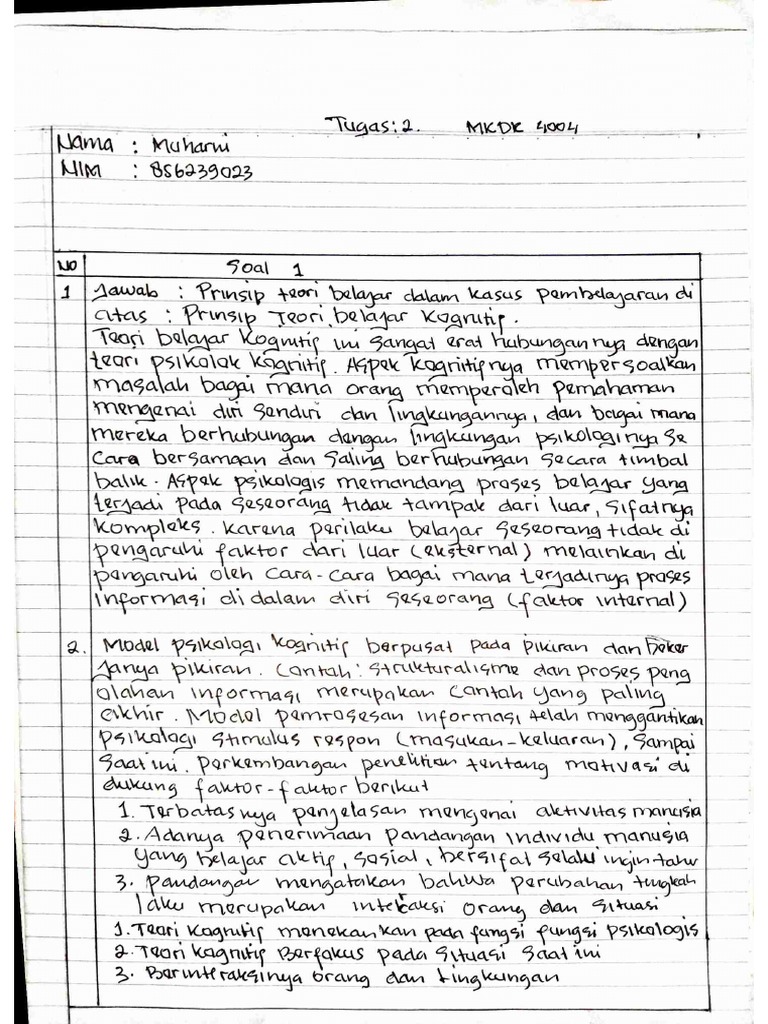 Tugas: 2. MKDK 4004
Nama : Muharni
NIM : 856239023
NO Soal 1
1 Jawab : Prinsip teori belajar dalam kasus pembelajaran di
atas : Prinsip Teori belajar kognitif.
Teori belajar kognitif ini sangat erat hubungannya dengan
teori psikolok kognitif. Aspek kognitifnya mempersoalkan
masalah bagai mana orang memperoleh pemahaman
mengenai diri sendiri dan lingkungannya, dan bagai mana
mereka berhubungan dengan lingkungan psikologinya se
cara bersamaan dan saling berhubungan secara timbal
balik. Aspek psikologis memandang proses belajar yang
terjadi pada seseorang tidak tampak dari luar, sifatnya
kompleks. karena perilaku belajar seseorang tidak di
pengaruhi faktor dari luar (eksternal) melainkan di
pengaruhi oleh cara-cara bagai mana terjadinya proses
informasi di dalam diri seseorang (faktor internal)
2. Model psikologi kognitif berpusat pada pikiran dan beker
janya pikiran. Contoh : strukturalisme dan proses peng
olahan informasi merupakan contoh yang paling
akhir. Model pemrosesan informasi telah menggantikan
psikologi stimulus respon (masukan-keluaran), sampai
saat ini. perkembangan penelitian tentang motivasi di
dukung faktor-faktor berikut
1. Terbatasnya penjelasan mengenai aktivitas manusia
2. Adanya penerimaan pandangan individu manusia
yang belajar aktif, sosial, bersifat selalu ingin tahu
3. pandangan mengatakan bahwa perubahan tingkah
laku merupakan interaksi orang dan situasi
1. Teori kognitif menekankan pada fungsi fungsi psikologis
2. Teori kognitif Berfokus pada situasi saat ini
3. Berinteraksinya orang dan lingkungan